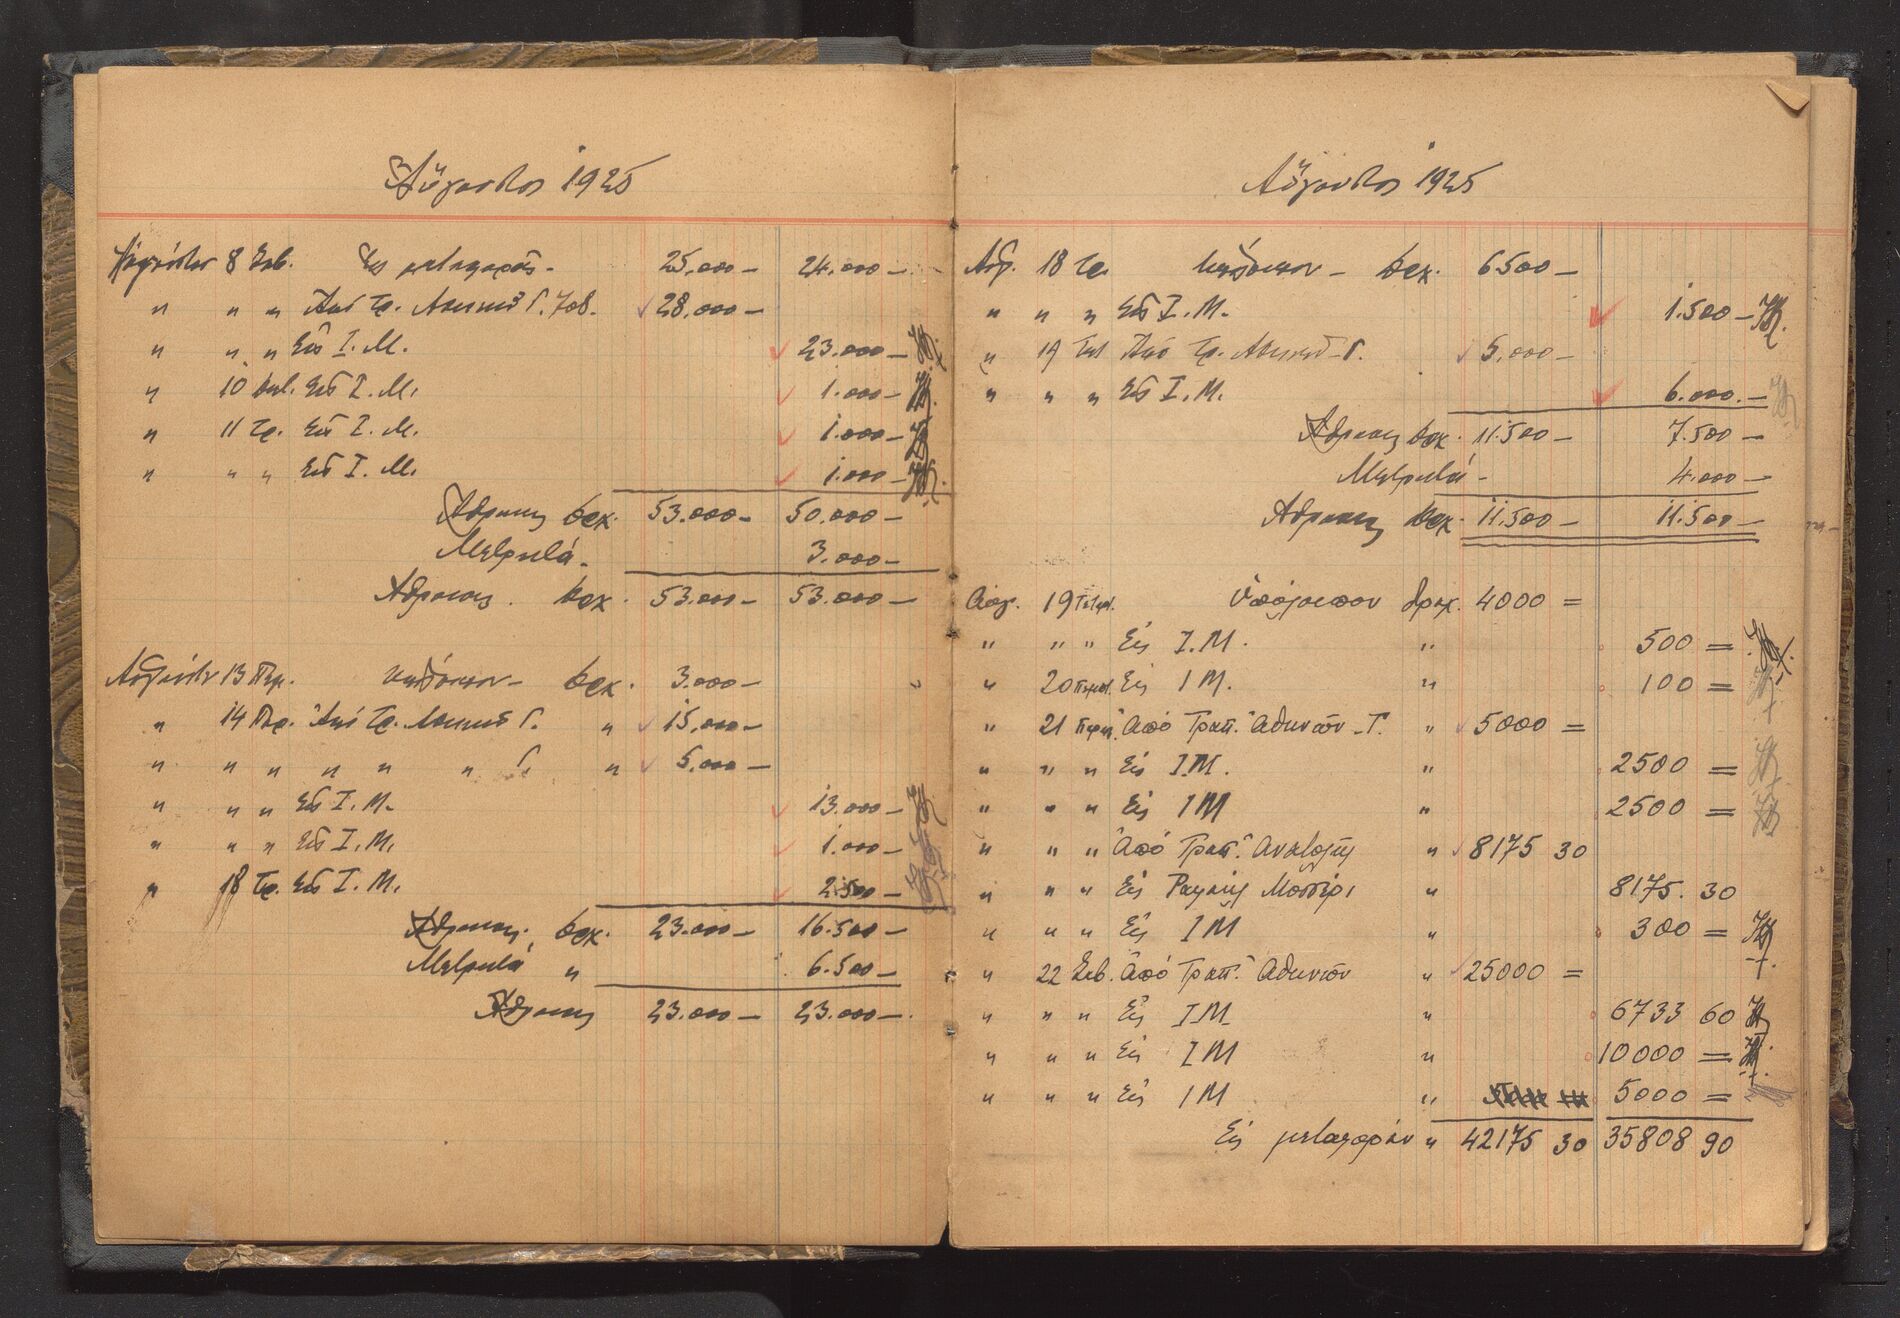 Αὔγουστος 1925
Αὐγούστου 8 Σαβ. Ἐκ μεταφορᾶς - 25.000 - 24.000 -
" " " Ἀπό Τρ. Ἀθηνῶν Γ. 708. 28.000 -
" " " Εἰς Ι. Μ. 23.000 -
" 10 Δευ. Εἰς Ι. Μ. 1.000 -
" 11 Τρ. Εἰς Ι. Μ. 1.000 -
" " " Εἰς Ι. Μ. 1.000 -
Ἄθροισις δρχ. 53.000 - 50.000 -
Μετρητά - 3.000 -
Ἄθροισις. δρχ. 53.000 - 53.000 -
Αὐγούστου 13 Πεμ. ὑπόλοιπον - δρχ. 3.000 -
" 14 Παρ. Ἀπό Τρ. Ἀθηνῶν Γ. " 15.000 -
" " " " " " Γ. " 5.000 -
" " " Εἰς Ι. Μ. 13.000 -
" " " Εἰς Ι. Μ. 1.000 -
" 18 Τρ. Εἰς Ι. Μ. 2.500 -
Ἄθροισις. δρχ. 23.000 - 16.500 -
Μετρητά " 6.500 -
Ἄθροισις 23.000 - 23.000 -
Αὔγουστος 1925
Αὐγ. 18 Τρ. ὑπόλοιπον - δρχ. 6500 -
" " " Εἰς Ι. Μ. 1.500 -
" 19 Τετ Ἀπό Τρ. Ἀθηνῶν - Γ. 5.000 -
" " " Εἰς Ι. Μ. 6.000. -
Ἄθροισις δρχ. 11.500 - 7.500 -
Μετρητά - 4.000 -
Ἄθροισις δρχ. 11.500 - 11.500 -
Αὐγ. 19 Τετάρτ. Ὑπόλοιπον δραχ. 4000 =
" " " Εἰς Ι. Μ. " 500 =
" 20 Πέμπτ. Εἰς Ι Μ. " 100 =
" 21 Παρ. Ἀπό Τραπ. Ἀθηνῶν - Γ. " 5000 =
" " " Εἰς Ι.Μ. " 2500 =
" " " Εἰς Ι Μ " 2500 =
" " " Ἀπό Τραπ. Ἀνατολῆς " 8175 30
" " " Εἰς Ραφαήλ Μοσσέρι " 8175. 30
" " " Εἰς Ι Μ " 300 =
" 22 Σαβ. Ἀπό Τραπ. Ἀθηνῶν " 25000 =
" " " Εἰς Ι.Μ. " 6733 60
" " " Εἰς Ι Μ " 10000 =
" " " Εἰς Ι Μ " 5000 =
Εἰς μεταφοράν " 42175 30 35808 90